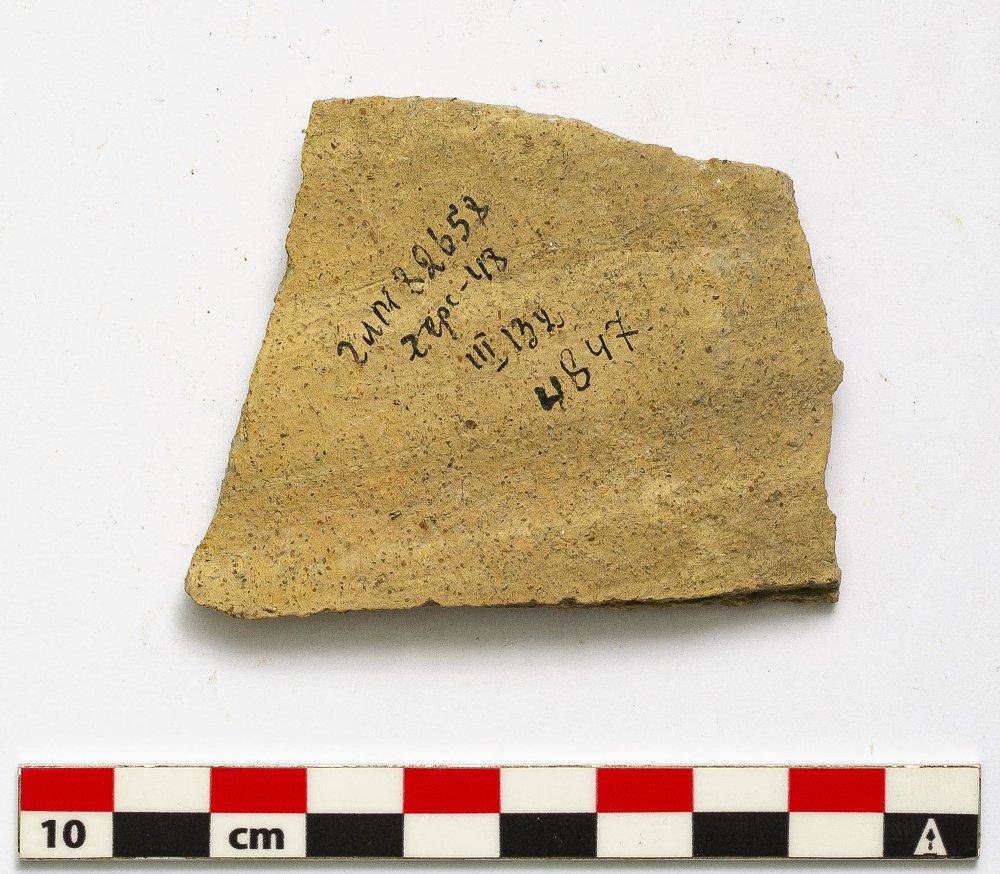 гим 82658
херс-48
III 132
4847
10 cm